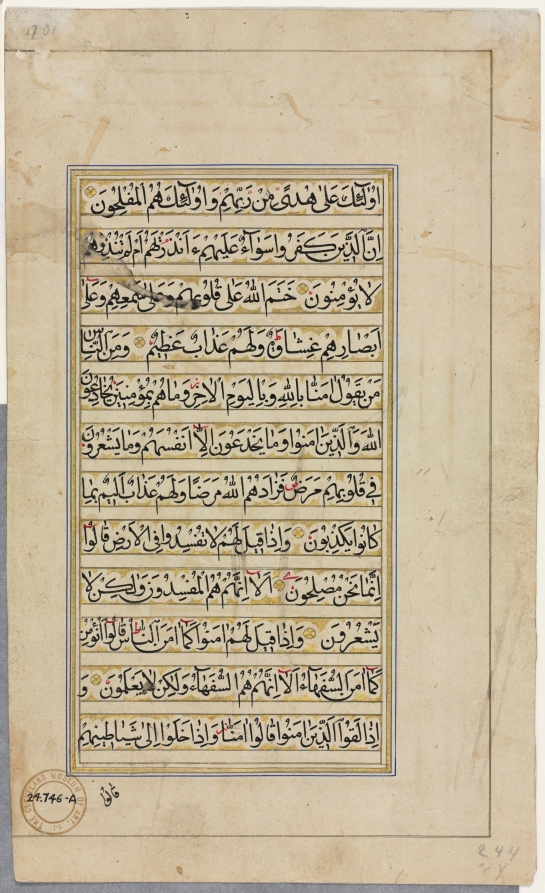 201
اُولٰٓئِكَ عَلٰى هُدًى مِّن رَّبِّهِمْ وَاُولٰٓئِكَ هُمُ الْمُفْلِحُونَ
اِنَّ الَّذِينَ كَفَرُوا سَوَآءٌ عَلَيْهِمْ ءَاَنْذَرْتَهُمْ اَمْ لَمْ تُنْذِرْهُمْ
لَا يُؤْمِنُونَ خَتَمَ اللّٰهُ عَلٰى قُلُوبِهِمْ وَعَلٰى سَمْعِهِمْ وَعَلٰى
اَبْصَارِهِمْ غِشَاوَةٌ وَلَهُمْ عَذَابٌ عَظِيمٌ وَمِنَ النَّاسِ
مَنْ يَقُولُ اٰمَنَّا بِاللّٰهِ وَبِالْيَوْمِ الْاٰخِرِ وَمَا هُمْ بِمُؤْمِنِينَ يُخَادِعُونَ
اللّٰهَ وَالَّذِينَ اٰمَنُوا وَمَا يَخْدَعُونَ اِلَّا اَنْفُسَهُمْ وَمَا يَشْعُرُونَ
فِي قُلُوبِهِمْ مَرَضٌ فَزَادَهُمُ اللّٰهُ مَرَضًا وَلَهُمْ عَذَابٌ اَلِيمٌ بِمَا
كَانُوا يَكْذِبُونَ وَاِذَا قِيلَ لَهُمْ لَا تُفْسِدُوا فِي الْاَرْضِ قَالُوا
اِنَّمَا نَحْنُ مُصْلِحُونَ اَلَا اِنَّهُمْ هُمُ الْمُفْسِدُونَ وَلٰكِنْ لَا
يَشْعُرُونَ وَاِذَا قِيلَ لَهُمْ اٰمِنُوا كَمَا اٰمَنَ النَّاسُ قَالُوا اَنُؤْمِنُ
كَمَا اٰمَنَ السُّفَهَآءُ اَلَا اِنَّهُمْ هُمُ السُّفَهَآءُ وَلٰكِنْ لَا يَعْلَمُونَ وَ
اِذَا لَقُوا الَّذِينَ اٰمَنُوا قَالُوا اٰمَنَّا وَاِذَا خَلَوْا اِلٰى شَيَاطِينِهِمْ
قالوا
THE CLEVELAND MUSEUM OF ART
24.746-A
244